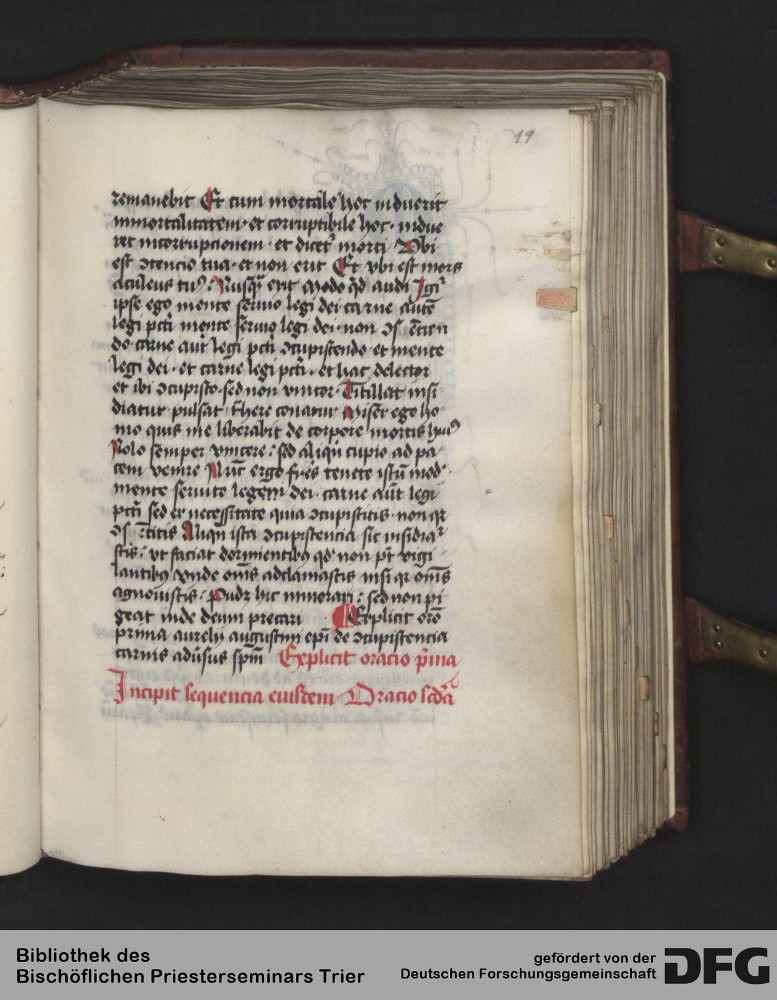 19
remanebit Et cum mortale hoc induerit
inmortalitatem · et corruptibile hoc · indue
ret incorrupcionem · et dicet᷒ morti Vbi
est ↄtencio tua · et non erit Et vbi est mors
aculeus tuꝰ : Nusqȝ erit Modo qd̄ audi Igr̄
ipse ego mente seruio legi dei carne aūte
legi pcti mente seruio legi dei · non
do · carne aūt legi pcti ↄcupiscendo · et mente
legi dei · et carne legi pcti · et hac delector
et ibi ↄcupisco · sed non vincor Titillat insi
diatur pulsat conatur Miser ego ho
mo quis me liberabit de corpore mortis huiꝰ
Nolo semper vincere : sed aliqn̄ cupio ad pa
cem venire Nūc ergo fr̄es tenete istū mod̄
mente seruite legem dei · carne aūt legi
pcti sed ex necessitate quia ↄcupiscitis · non qr
Aliqn̄ ista ↄcupiscencia sic insidiat᷒
sctis : vt faciat dormientibꝰ qd̄ non pt̄ vigi
lantibꝰ vnde om̄s adclamastis nisi qr om̄s
agnouistis · Pudȝ hic inmorari : sed non pi
geat inde deum precari Explicit orō
prima aurelij augustini epi de ↄcupiscencia
carnis adūsus spm̄ Explicit oracio p̄ma
Incipit sequencia eiusdem Oracio scd̄a
Bibliothek des
Bischöflichen Priesterseminars Trier
gefördert von der
Deutschen Forschungsgemeinschaft
DFG